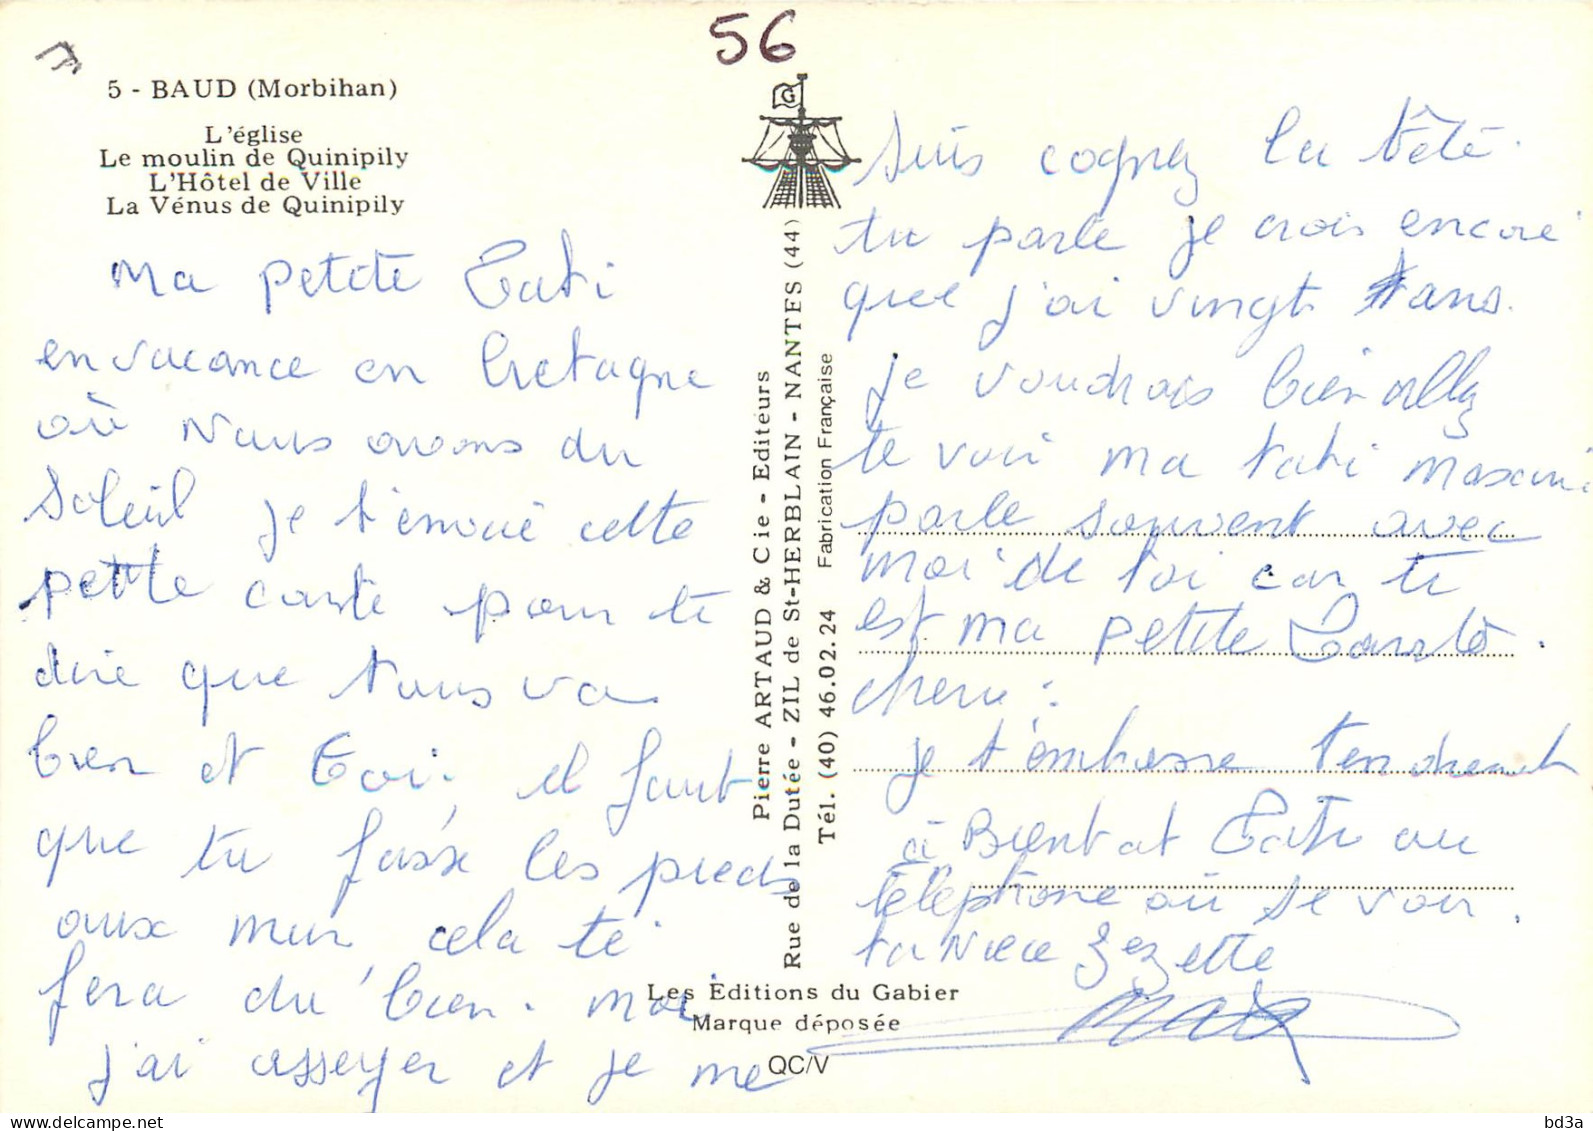 56
5 - BAUD (Morbihan)
L'église
Le moulin de Quinipily
L'Hôtel de Ville
La Vénus de Quinipily
Ma petite Tati
en vacance en bretagne
où Nous avons du
Soleil je t'envoie cette
petite carte pour te
dire que tous va
bien et toi. il faut
que tu fasse les pieds
aux mur, cela te
fera du bien. moi
j'ai asseyer et je me
G
Pierre ARTAUD & Cie - Editeurs
Rue de la Dutée - ZIL de St-HERBLAIN - NANTES (44)
Tél. (40) 46.02.24 Fabrication Française
Les Editions du Gabier
Marque déposée
QC/V
suis cogney la tête.
tu parle je crois encore
que j'ai vingt ans.
je voudrais bien ally
te voir ma tati
parle souvent avec
moi de toi car tu
est ma petite
cheri.
je t'embrasse tendrement
à Bientot Tati au
téléphone où se voir.
ta Niece Zezette
bd3a